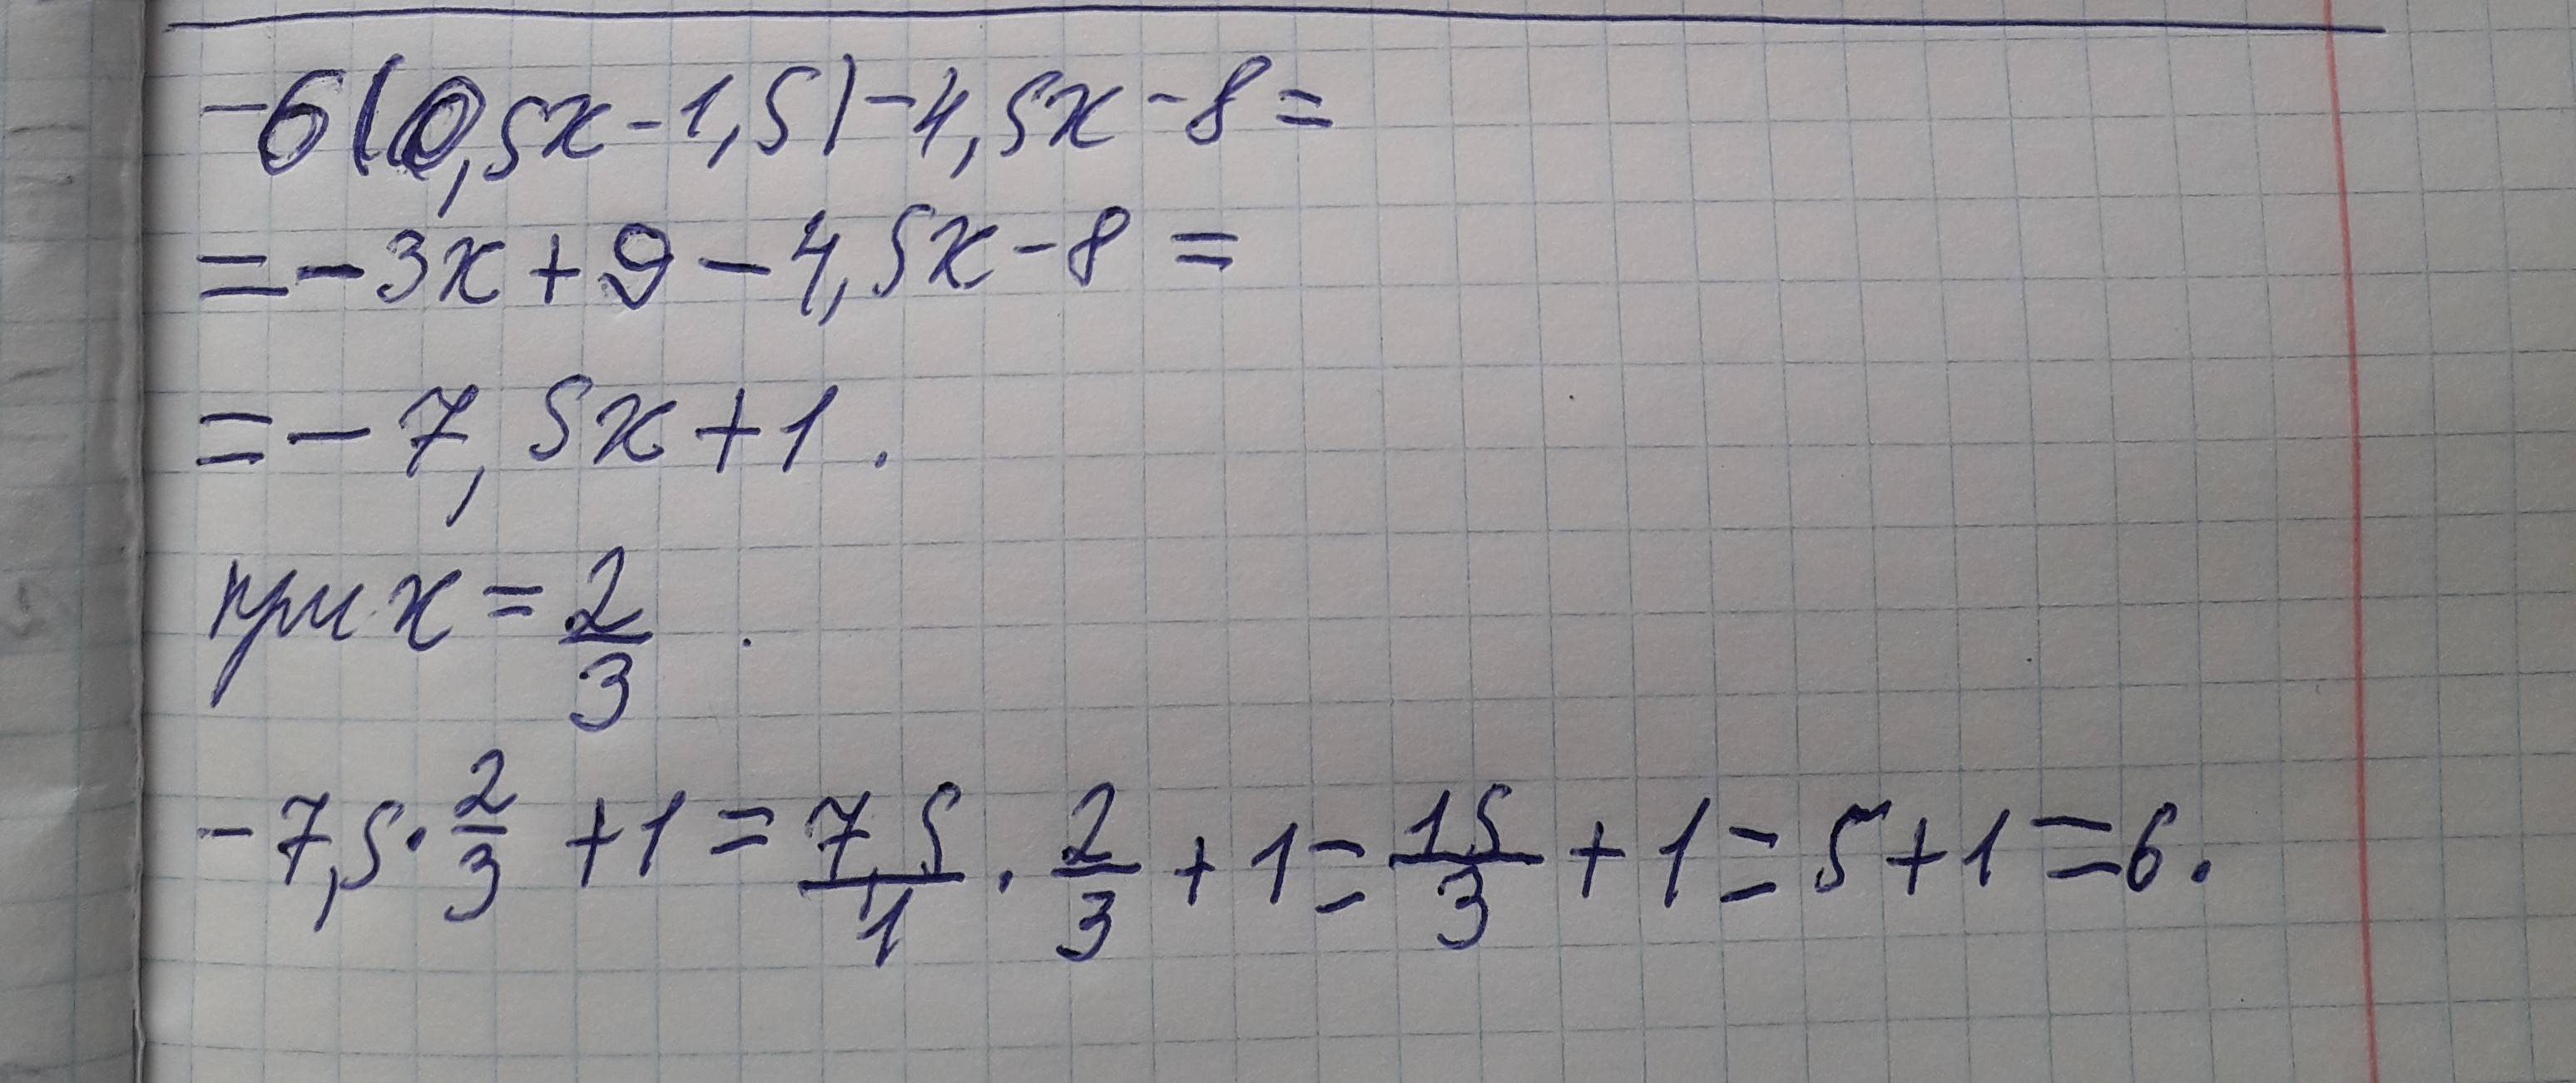 -6(0,5x-1,5)-4,5x-8=
=-3x+9-4,5x-8=
=-7,5x+1.
при x=2/3
-7,5·2/3+1=7,5/1·2/3+1=15/3+1=5+1=6.